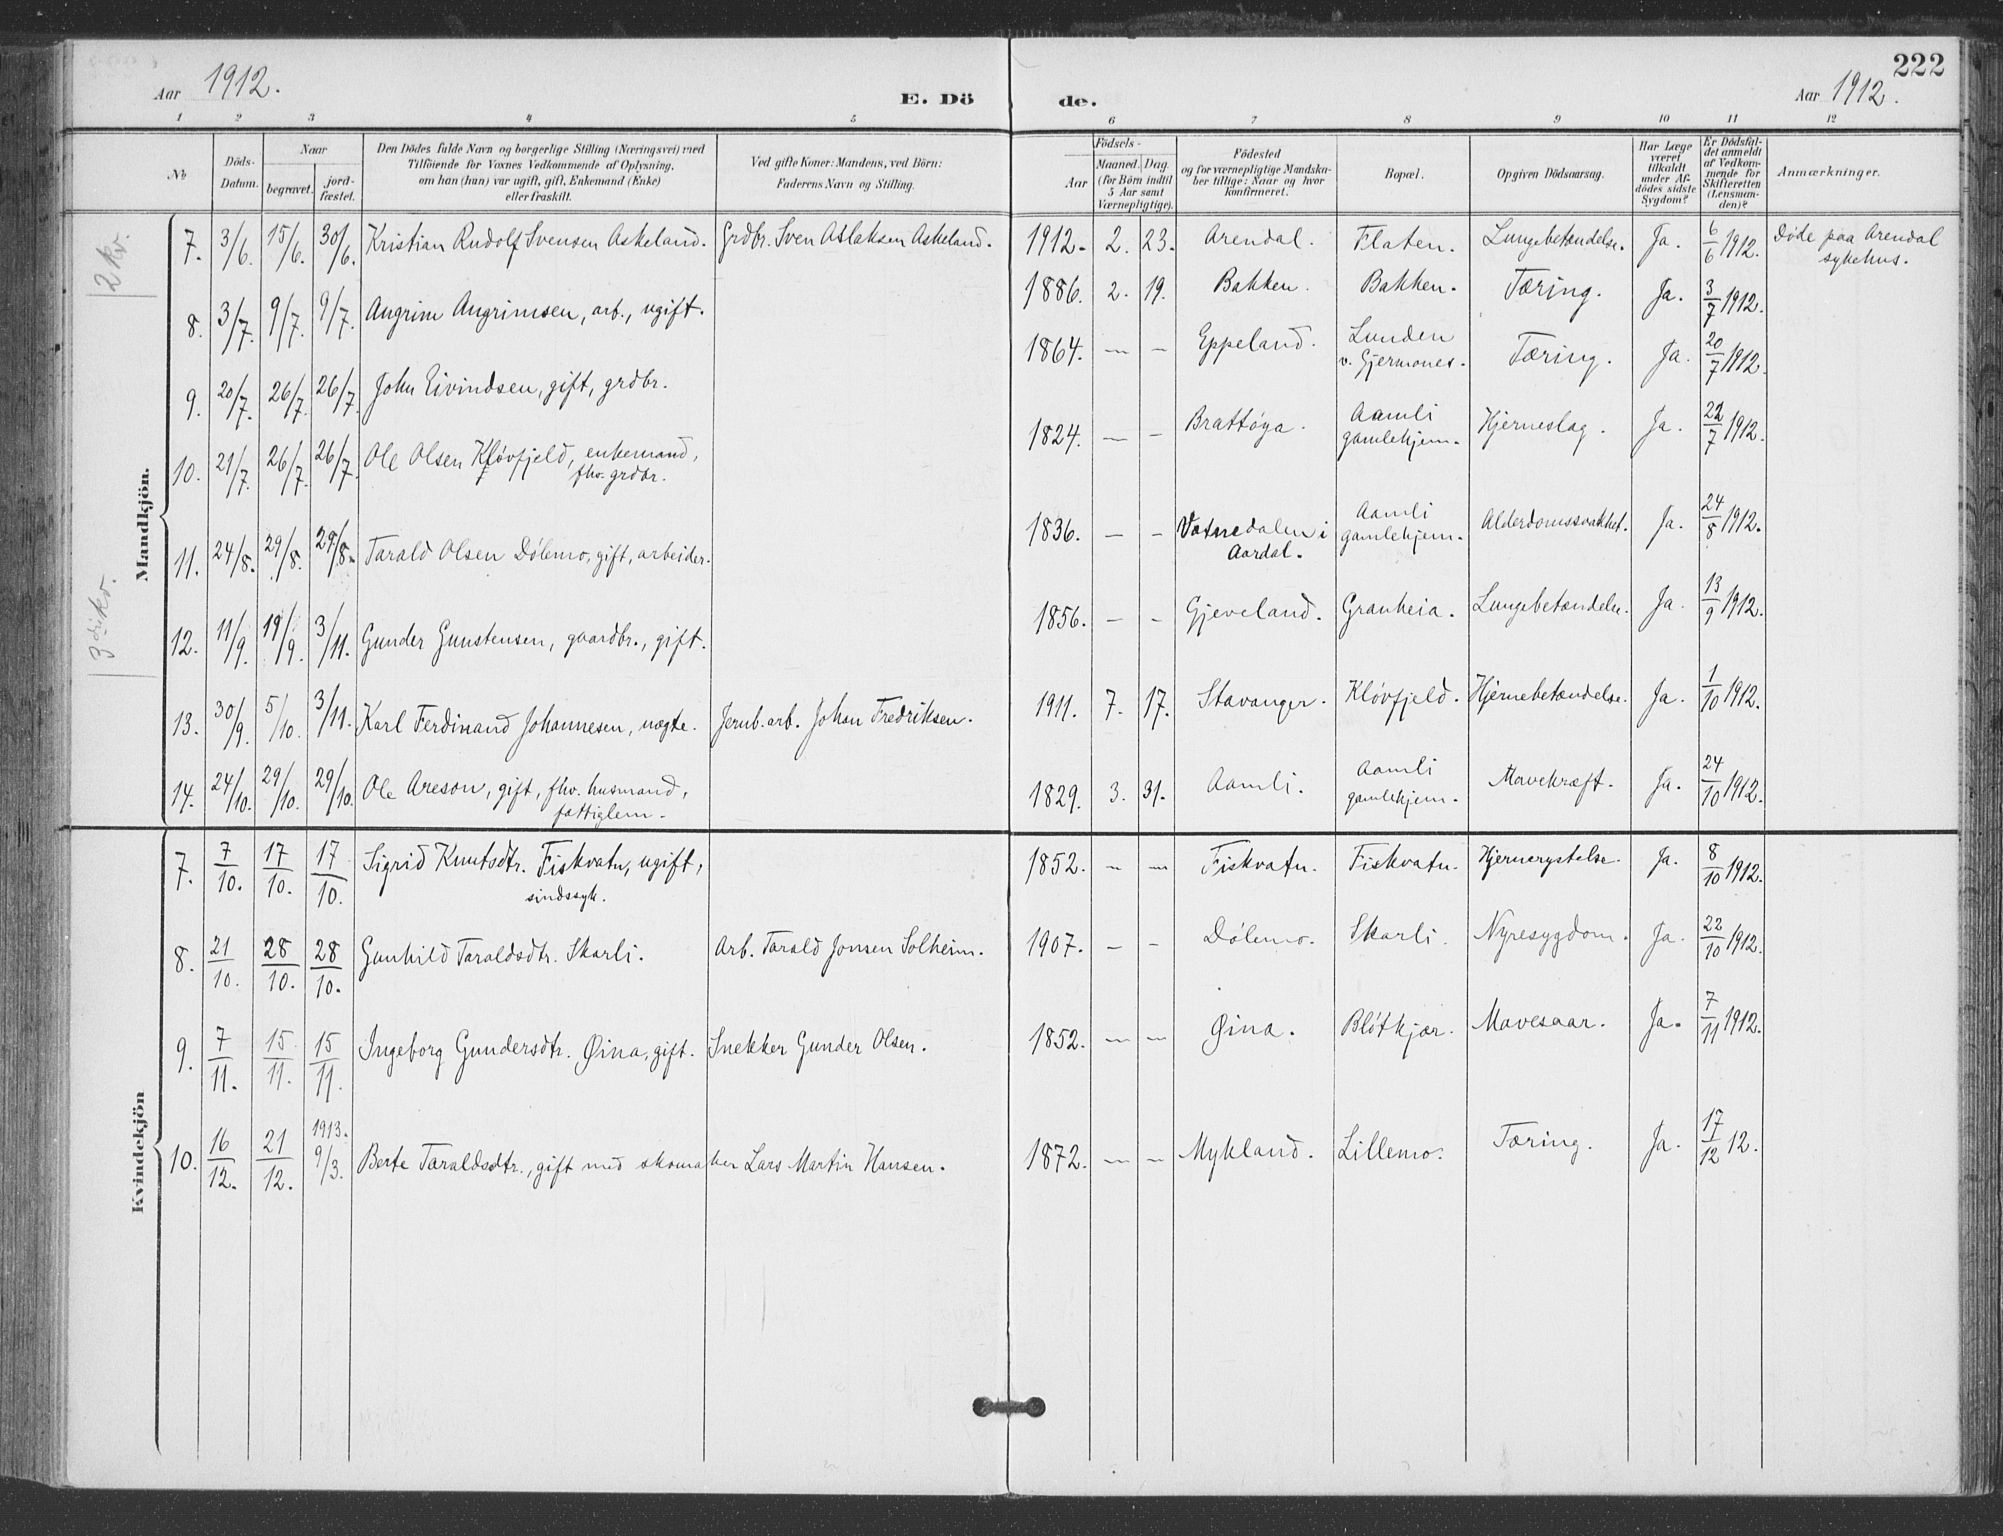 222
Aar 1912.
E. Döde.
Aar 1912.
1 2 3 4 5 6 7 8 9 10 11 12
No
Döds-Datum.
Naar
begravet.
jord-fæstet.
Den Dödes fulde Navn og borgerlige Stilling (Næringsvei) med
Tilföiende for Voxnes Vedkommende af Oplysning,
om han (hun) var ugift, gift, Enkemand (Enke)
eller fraskilt.
Ved gifte Koner: Mandens, ved Börn:
Faderens Navn og Stilling.
Födsels-
Aar
Maaned. Dag.
(for Börn indtil
5 Aar samt
Værnepligtige).
Födested
og for værnepligtige Mandska-
ber tillige: Naar og hvor
konfirmeret.
Bopæl.
Opgiven Dödsaarsag.
Har Læge
været
tilkaldt
under Af-
dödes sidste
Sygdom?
Er Dödsfal-
det anmeldt
af Vedkom-
mende for
Skifteretten
(Lensman-
den)?
Anmærkninger.
2 kv.
Mandkjön.
7. 3/6. 15/6. 30/6. Kristian Rudolf Svensen Askeland. Grdbr. Sven Aslaksen Askeland. 1912. 2. 23. Arendal. Flaten. Lungebetændelse. Ja. 6/6 1912. Døde paa Arendal
sykehus.
8. 3/7. 9/7. 9/7. Angrim Angrimsen, arb., ugift. 1886. 2. 19. Bakken. Bakken. Tæring. Ja. 3/7 1912.
9. 20/7. 26/7. 26/7. John Eivindsen, gift, grdbr. 1864. — — Eppeland. Lunden
v. Gjermones. Tæring. Ja. 20/7 1912.
10. 21/7. 26/7. 26/7. Ole Olsen Kløvfjeld, enkemand,
fhv. grdbr. 1824. — — Brattøya. Aamli
gamlehjem. Hjerneslag. Ja. 22/7 1912.
11. 24/8. 29/8. 29/8. Tarald Olsen Dølemo, gift, arbeider. 1836. — — Vatnedalen i
Aardal. Aamli
gamlehjem. Alderdomssvakhet. Ja. 24/8 1912.
12. 11/9. 19/9. 3/11. Gunder Gunstensen, gaardbr., gift. 1856. — — Gjeveland. Granheia. Lungebetændelse. Ja. 13/9 1912.
13. 30/9. 5/10. 3/11. Karl Ferdinand Johannesen, uægte. Jernb. arb. Johan Fredriksen. 1911. 7. 17. Stavanger. Kløvfjeld. Hjernebetændelse. Ja. 1/10 1912.
14. 24/10. 29/10. 29/10. Ole Areson, gift, fhv. husmand,
fattiglem. 1829. 3. 31. Aamli. Aamli
gamlehjem. Mavekræft. Ja. 24/10 1912.
Kvindekjön
7. 7/10. 17/10. 17/10. Sigrid Knutsdtr. Fiskvatn, ugift,
sindssyk. 1852. — — Fiskvatn. Fiskvatn. Hjernerystelse. Ja. 8/10 1912.
8. 21/10. 28/10. 28/10. Gunhild Taraldsdtr. Skarli. Arb. Tarald Jonsen Solheim. 1907. — — Dølemo. Skarli. Nyresygdom. Ja. 22/10 1912.
9. 7/11. 15/11. 15/11. Ingeborg Gundersdtr. Øina, gift. Snekker Gunder Olsen. 1852. — — Øina. Bløtkjær. Mavesaar. Ja. 7/11 1912.
10. 16/12. 21/12. 1913. 9/3. Berte Taraldsdtr., gift med skomaker Lars Martin Hansen. 1872. — — Mykland. Lillemo. Tæring. Ja. 17/12 12.